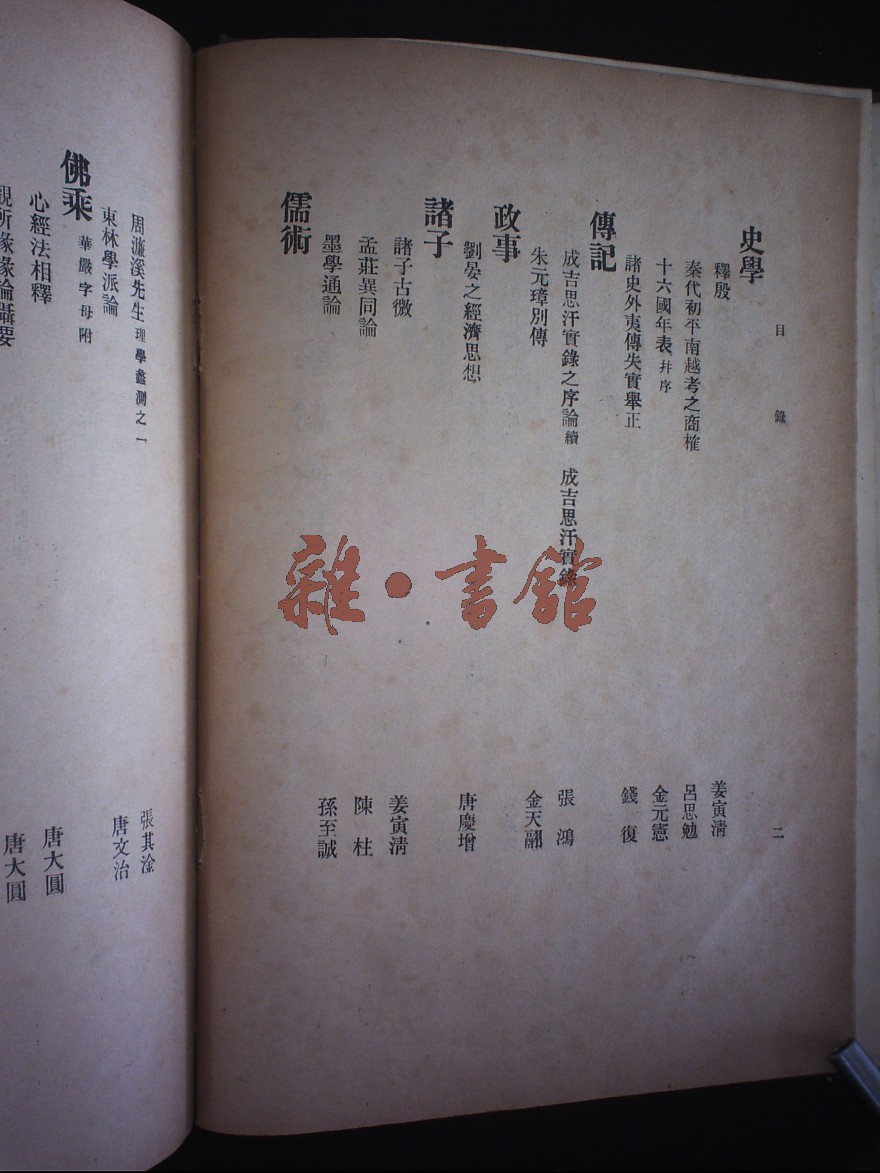 目錄
二
史學
釋殷
姜寅清
秦代初平南越考之商榷
呂思勉
十六國年表幷序
金元憲
諸史外夷傳失實舉正
錢復
傳記
成吉思汗實錄之序論續 成吉思汗實錄
張鴻
朱元璋別傳
金天翮
政事
劉晏之經濟思想
唐慶增
諸子
諸子古微
姜寅清
孟莊異同論
陳柱
墨學通論
孫至誠
儒術
周濂溪先生理學蠡測之一
張其淦
東林學派論
唐文治
佛乘
華嚴字母附
心經法相釋
唐大圓
觀所緣緣論攝要
唐大圓
雜·書館